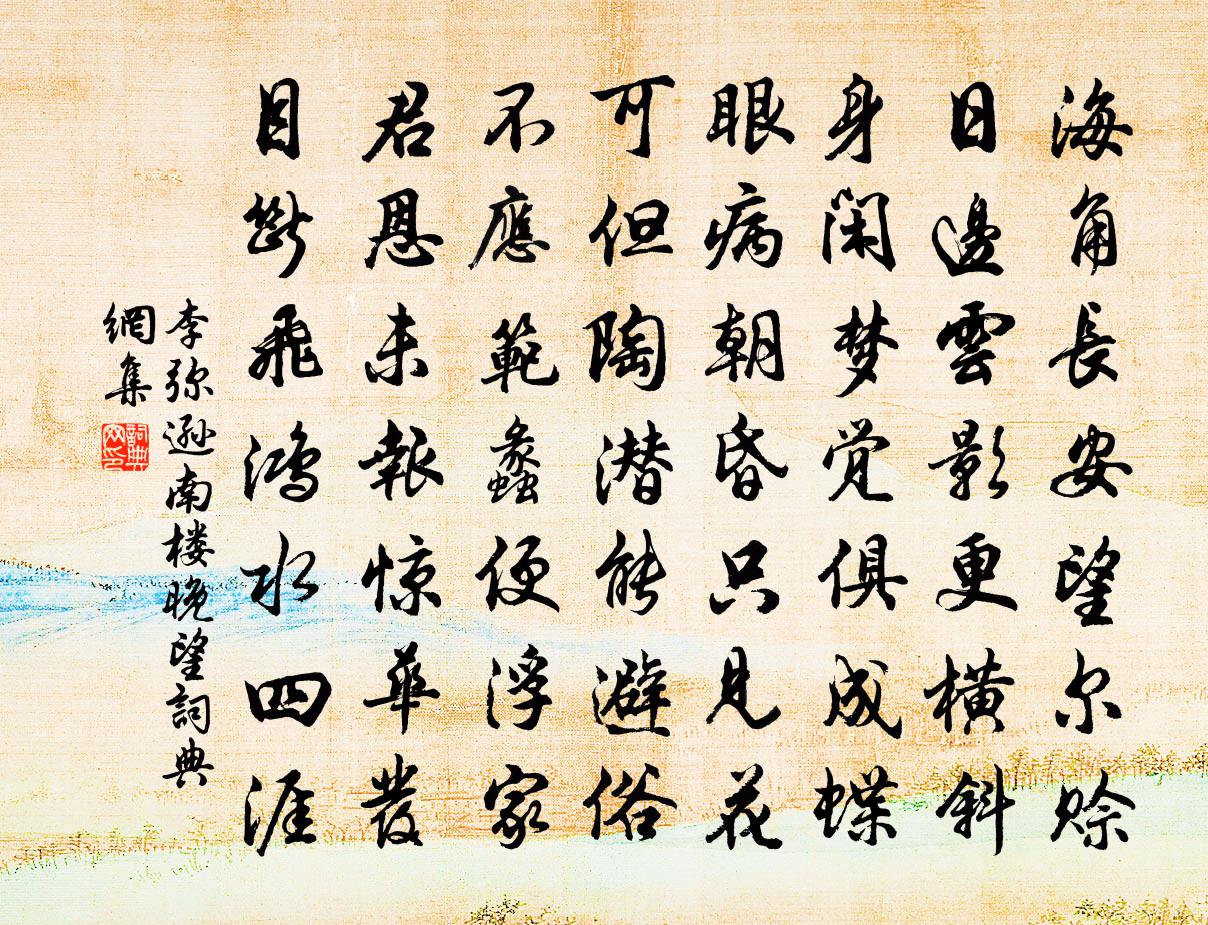 海角长安望尔赊
日邊雲影更横斜
身闲梦觉俱成蝶
眼病朝昏只見花
可但陶潜能避俗
不應範蠡便浮家
君恩未報惊華發
目斷飛鴻水四涯
李弥遜南楼晚望詞典
網集
詞典